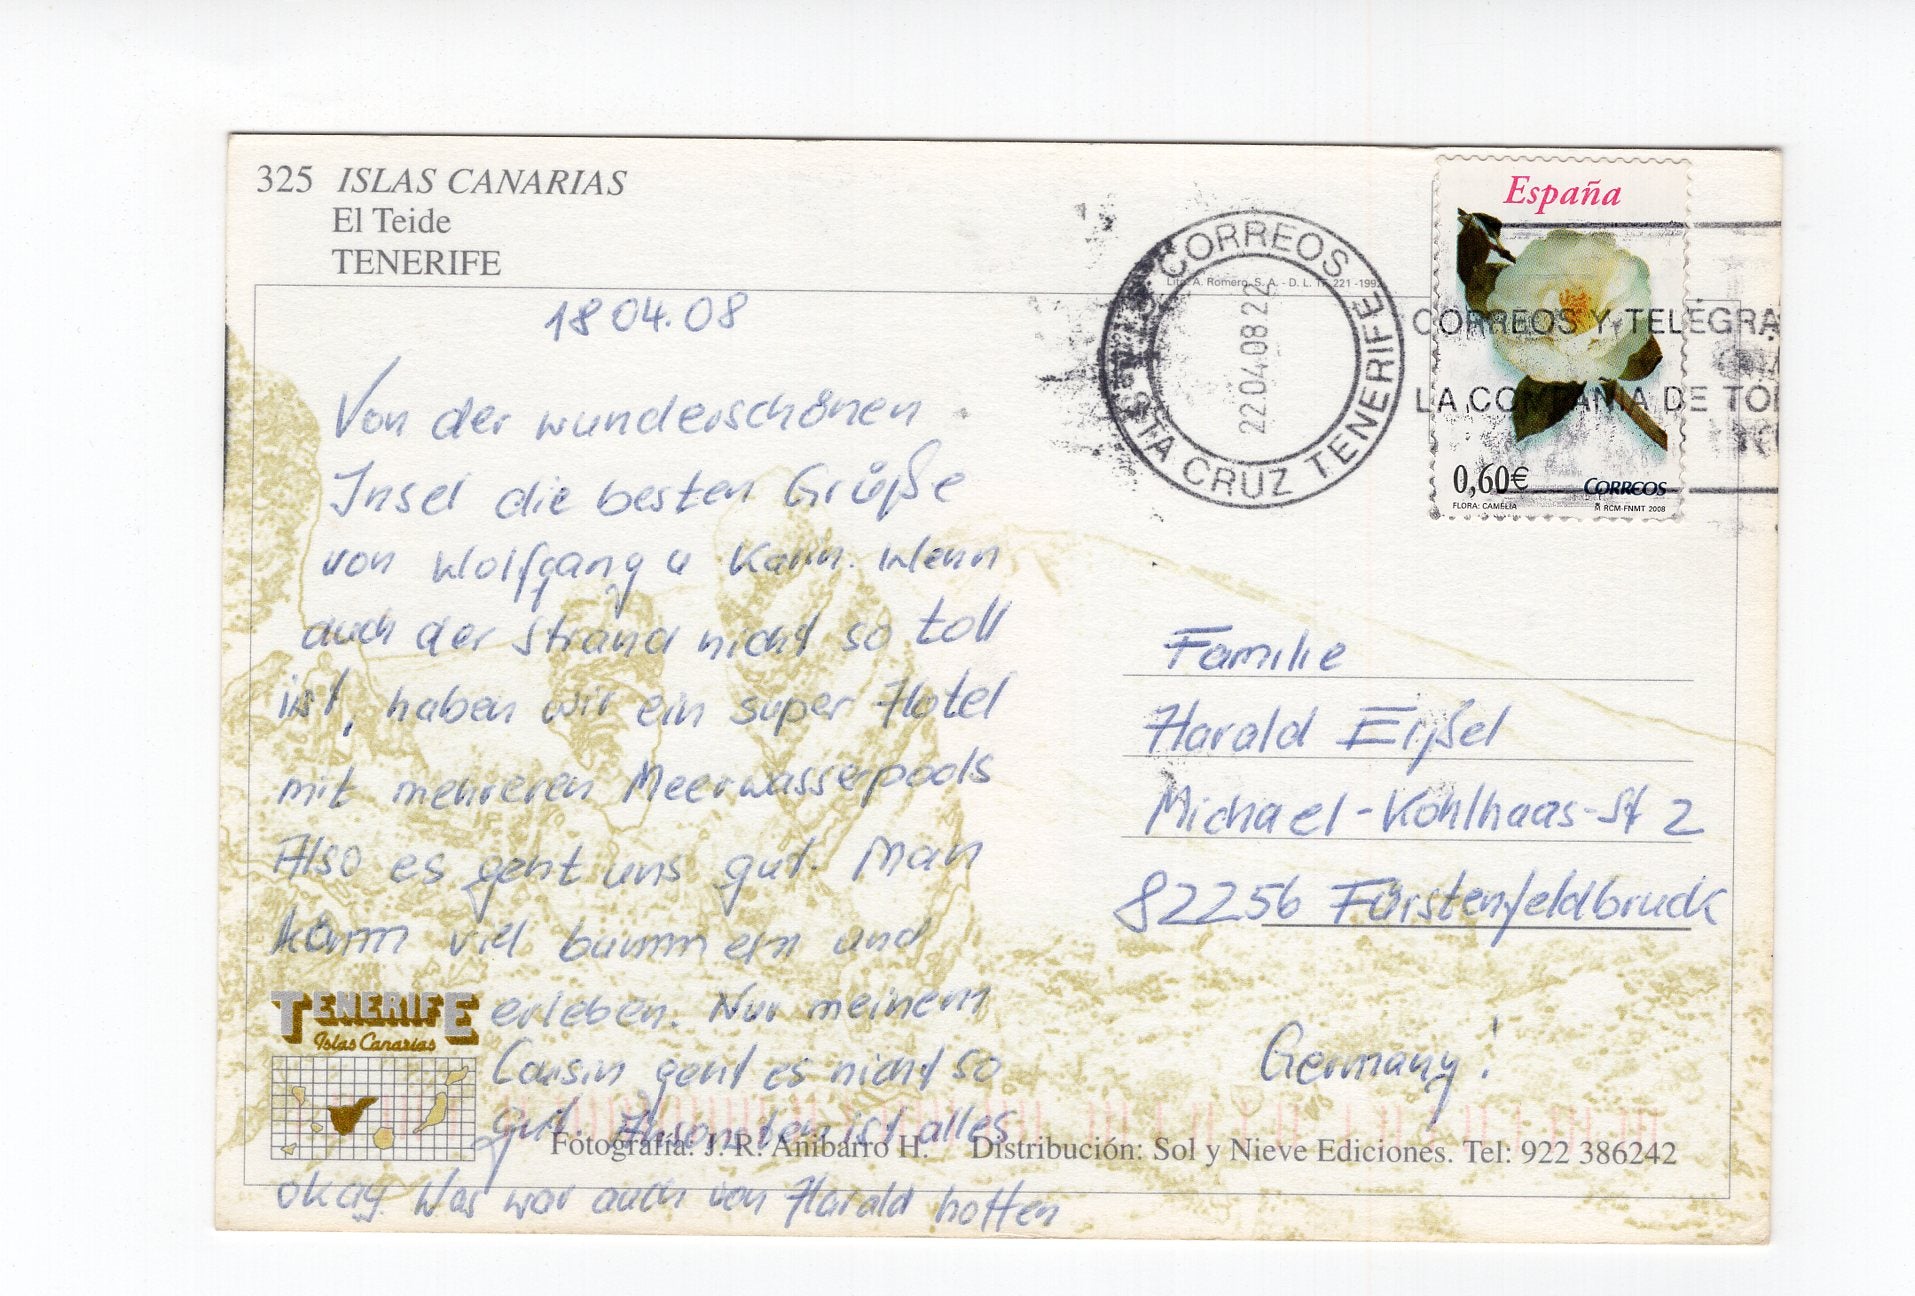 325 ISLAS CANARIAS
El Teide
TENERIFE
18 04.08
Von der wunderschönen
Insel die besten Grüße
von Wolfgang u Karin. Wenn
auch der Strand nicht so toll
ist, haben wir ein super Hotel
mit mehreren Meerwasserpools
Also es geht uns gut. Man
kann viel bummeln und
erleben. Nur meinem
Cousin geht es nicht so
gut. Ansonsten ist alles
okay. Was wir auch von Harald hoffen
TENERIFE
Islas Canarias
Fotografía: J. R. Anibarro H. Distribución: Sol y Nieve Ediciones. Tel: 922 386242
Lit. A. Romero, S. A. - D. L. TF. 221 -1992
CORREOS
STA CRUZ TENERIFE
22.04.08 22
CORREOS Y TELEGRA
LA COMPAÑIA DE TO
España
0,60€
CORREOS
FLORA: CAMELIA
RCM-FNMT 2008
Familie
Harald Eißel
Michael-Kohlhaas-St 2
82256 Fürstenfeldbruck
Germany!